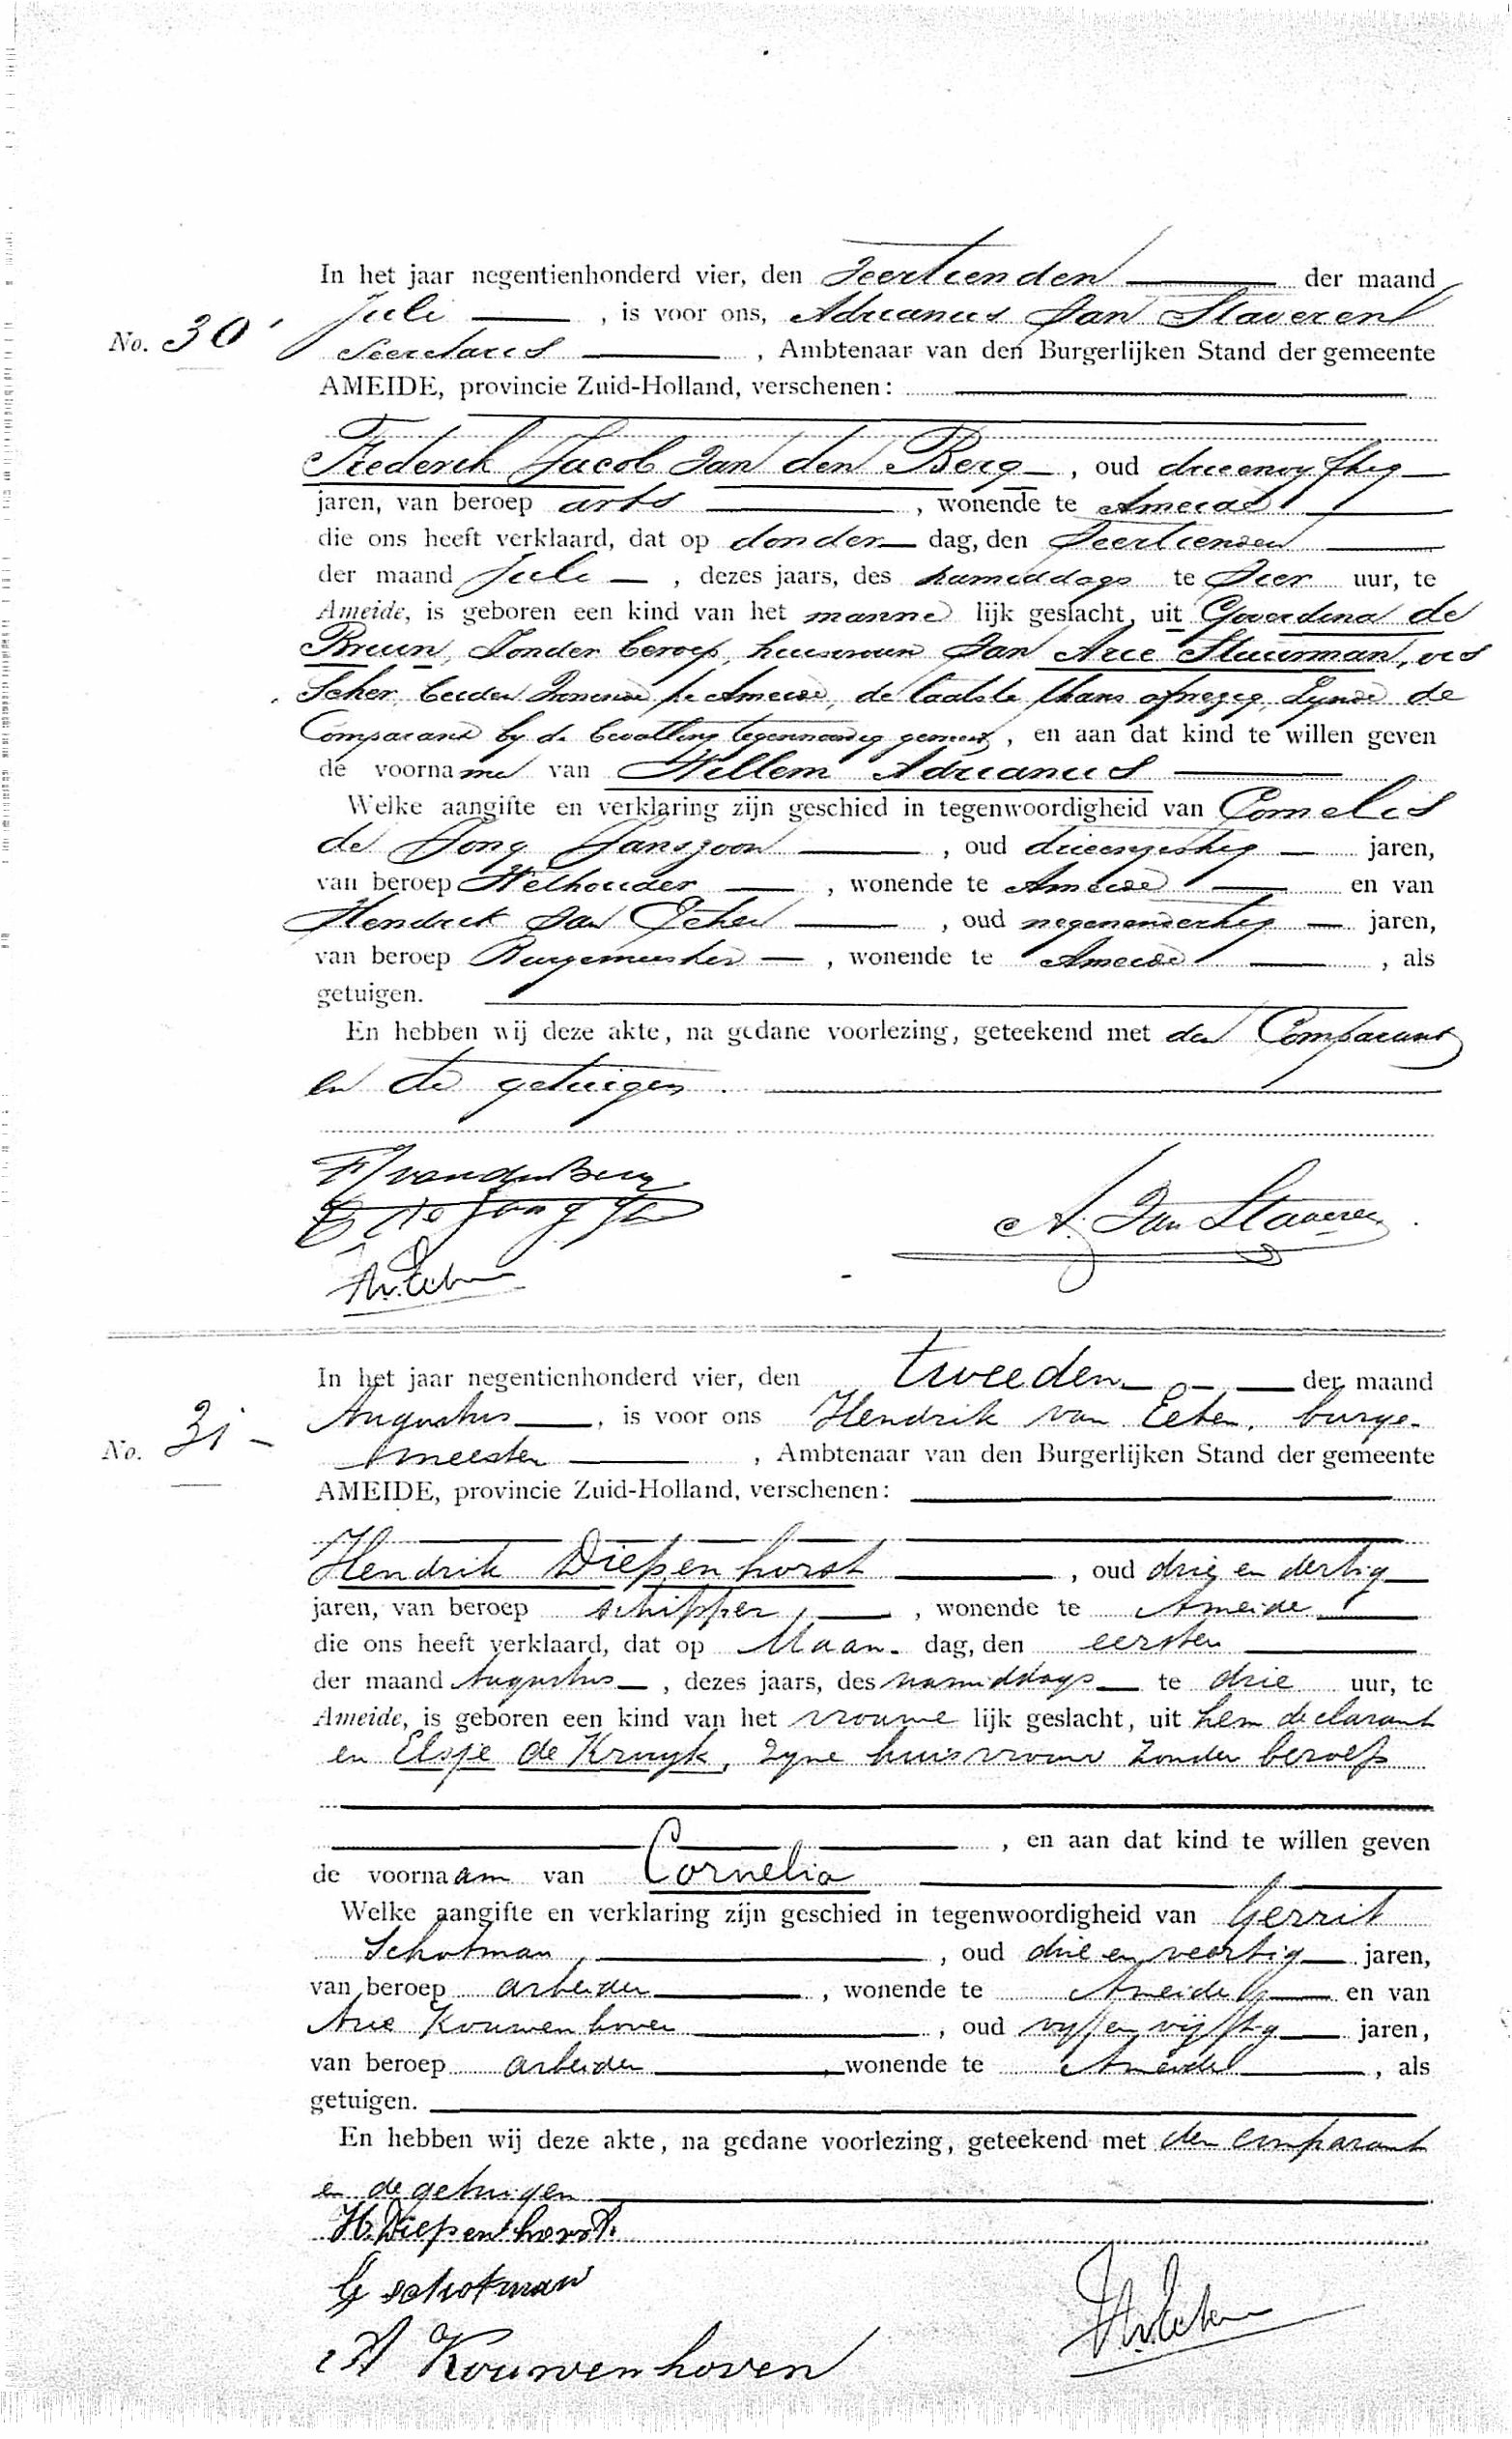 In het jaar negentienhonderd vier, den Veertienden der maand
No. 30 Juli , is voor ons, Adrianus Van Staveren
Secretaris , Ambtenaar van den Burgerlijken Stand der gemeente
AMEIDE, provincie Zuid-Holland, verschenen:
Frederik Jacob Van den Berg , oud drieenvyftig
jaren, van beroep arts , wonende te Ameide
die ons heeft verklaard, dat op donder dag, den Veertienden
der maand Juli , dezes jaars, des namiddags te Vier uur, te
Ameide, is geboren een kind van het manne lijk geslacht, uit Goverdina de
Bruin, Zonder beroep, huisvrouw Van Arie Stuurman, vis
scher, beiden Wonende te Ameide, de laatste thans afwezig, Zynde de
Comparant by de bevalling tegenwoordig geweest, en aan dat kind te willen geven
de voorname van Willem Adrianus
Welke aangifte en verklaring zijn geschied in tegenwoordigheid van Cornelis
de Jong Janszoon , oud drieenzestig jaren,
van beroep Wethouder , wonende te Ameide en van
Hendrik Van Eeten , oud negenendertig jaren,
van beroep Burgemeester , wonende te Ameide , als
getuigen.
En hebben wij deze akte, na gedane voorlezing, geteekend met den Comparant
en de getuigen.
F J van den Berg
C de Jong Jz
A. Van Staveren
HvEeten
In het jaar negentienhonderd vier, den tweeden der maand
No. 31 Augustus , is voor ons Hendrik van Eeten, burge-
meester , Ambtenaar van den Burgerlijken Stand der gemeente
AMEIDE, provincie Zuid-Holland, verschenen:
Hendrik Diepenhorst , oud drie en dertig
jaren, van beroep schipper , wonende te Ameide
die ons heeft verklaard, dat op Maan- dag, den eersten
der maand Augustus , dezes jaars, des namiddags te drie uur, te
Ameide, is geboren een kind van het vrouwe lijk geslacht, uit hem declarant
en Elsje de Kruyk, zyne huisvrouw zonder beroep
, en aan dat kind te willen geven
de voornaam van Cornelia
Welke aangifte en verklaring zijn geschied in tegenwoordigheid van Gerrit
Schotman , oud drie en veertig jaren,
van beroep arbeider , wonende te Ameide en van
Arie Kouwenhoven , oud vyf en vijftig jaren,
van beroep arbeider , wonende te Ameide , als
getuigen.
En hebben wij deze akte, na gedane voorlezing, geteekend met den comparant
en de getuigen
H. Diepenhorst.
G schotman
HvEeten
A Kouwenhoven